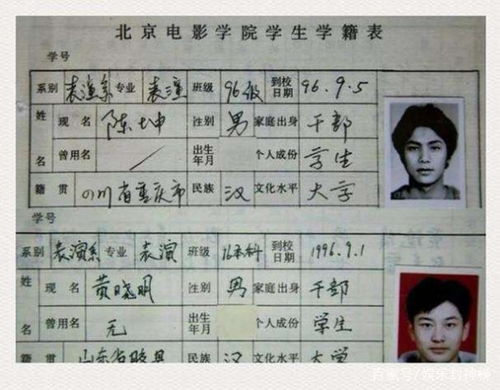 北京电影学院学生学籍表
学号
系别 表演系 专业 表演 班级 96级 到校日期 96.9.5
姓名 现名 陈坤 性别 男 家庭出身 干部
曾用名 / 出生年月 个人成份 学生
籍贯 四川省重庆市 民族 汉 文化水平 大学
学号
系别 表演系 专业 表演 班级 96本科 到校日期 1996.9.1
姓名 现名 黄晓明 性别 男 家庭出身 干部
曾用名 无 出生年月 个人成份 学生
籍贯 山东省 民族 汉 文化水平 大学
百家号/娱乐封神榜